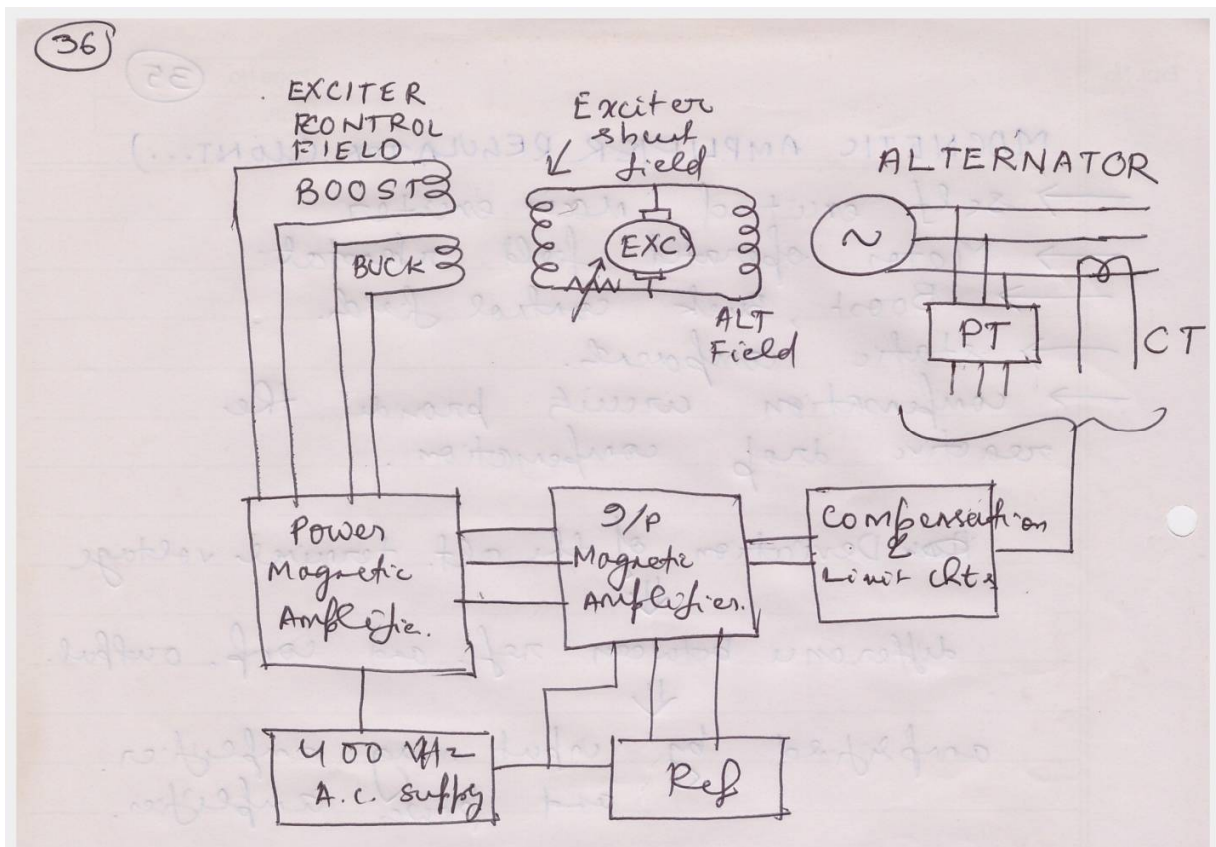 36
EXCITER
CONTROL
FIELD
BOOST
BUCK
Exciter
shunt
field
EXC
ALT
Field
ALTERNATOR
~
PT
CT
Power
Magnetic
Amplifie.
I/P
Magnetic
Amplifier.
Compensation
&
Limit Ckts
400 Hz
A.C. Supply
Ref